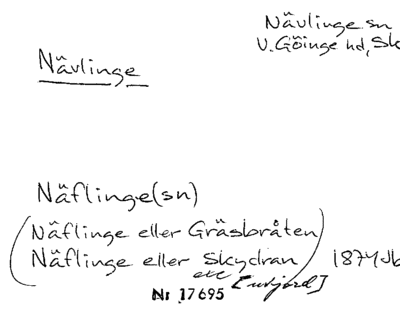 Nävlinge sn
V. Göinge hd, Sk
Nävlinge
Näflinge (sn)
(Näflinge eller Gräsbråten
Näflinge eller Skydran) 1874 Jb
etc
Nr 17695